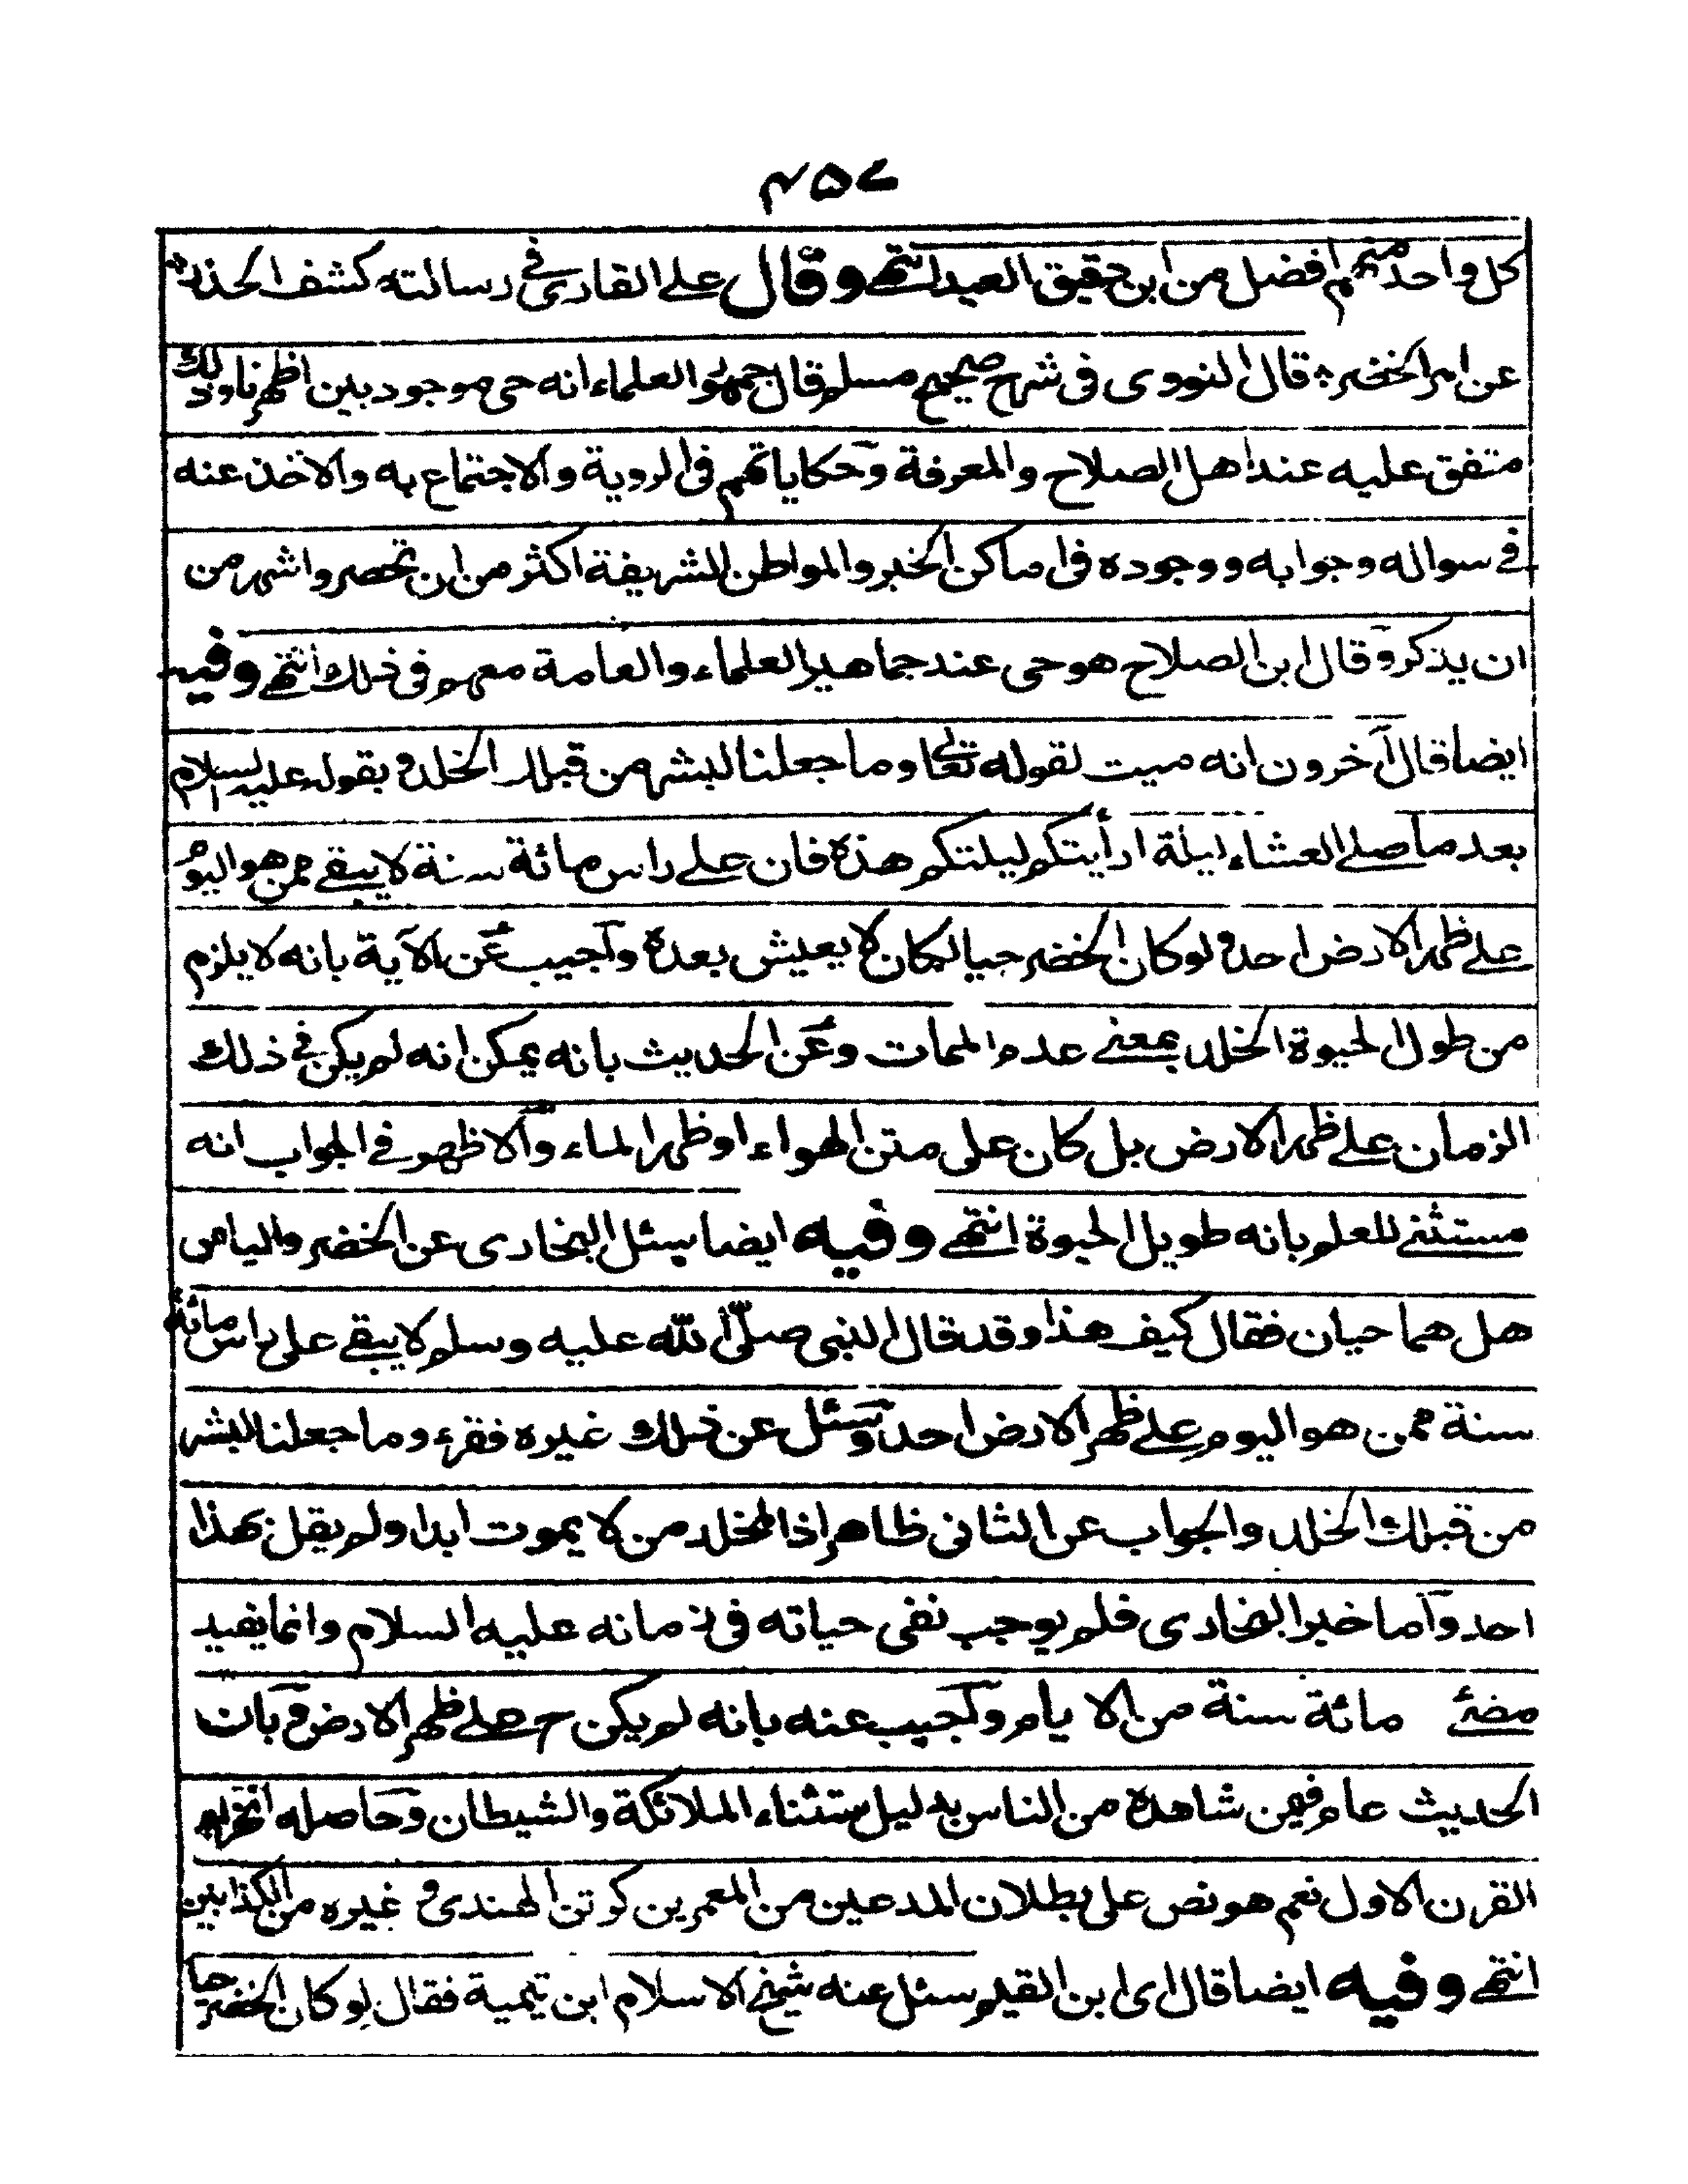 ۴۵۷
كل واحد منهم افضل من ابن دقيق العيد انتهى وقال على القارى فى رسالته كشف الحذر
عن امر الخضر قال النووى فى شرح صحيح مسلم قال جمهور العلماء انه حى موجود بين اظهرنا وذلك
متفق عليه عند اهل الصلاح والمعرفة وحكاياتهم فى الروية والاجتماع به والاخذ عنه
فى سواله وجوابه ووجوده فى اماكن الخير والمواطن الشريفة اكثر من ان تحصر واشهر من
ان يذكر وقال ابن الصلاح هو حى عند جماهير العلماء والعامة معهم فى ذلك انتهى وفيه
ايضا قال آخرون انه ميت لقوله تعالى وما جعلنا لبشر من قبلك الخلد وبقوله عليه السلام
بعد ما صلى العشاء ليلة ارأيتكم ليلتكم هذه فان على راس مائة سنة لا يبقى ممن هو اليوم
على ظهر الارض احد ولو كان الخضر حيا لكان لا يعيش بعده واجيب عن الآية بانه لا يلزم
من طول الحيوة الخلد بمعنى عدم الممات وعن الحديث بانه يمكن انه لم يكن فى ذلك
الزمان على ظهر الارض بل كان على متن الهواء او ظهر الماء والاظهر فى الجواب انه
مستثنى للعلم بانه طويل الحيوة انتهى وفيه ايضا سئل البخارى عن الخضر والياس
هل هما حيان فقال كيف هذا وقد قال النبى صلى الله عليه وسلم لا يبقى على راس مائة
سنة ممن هو اليوم على ظهر الارض احد وسئل عن ذلك غيره فقرء وما جعلنا لبشر
من قبلك الخلد والجواب عن الثانى ظاهر اذ المخلد من لا يموت ابدا ولم يقل بهذا
احد واما خبر البخارى فلم يوجب نفى حياته فى زمانه عليه السلام وانما يفيد
مضئ مائة سنة من الايام واجيب عنه بانه لم يكن ح على ظهر الارض وبان
الحديث عام فيمن شاهده من الناس بدليل استثناء الملائكة والشيطان وحاصله انخرام
القرن الاول نعم هو نص على بطلان المدعين من المعمرين كرتن الهندى وغيره من الكذابين
انتهى وفيه ايضا قال اى ابن القيم سئل عنه شيخ الاسلام ابن تيمية فقال لو كان الخضر حيا